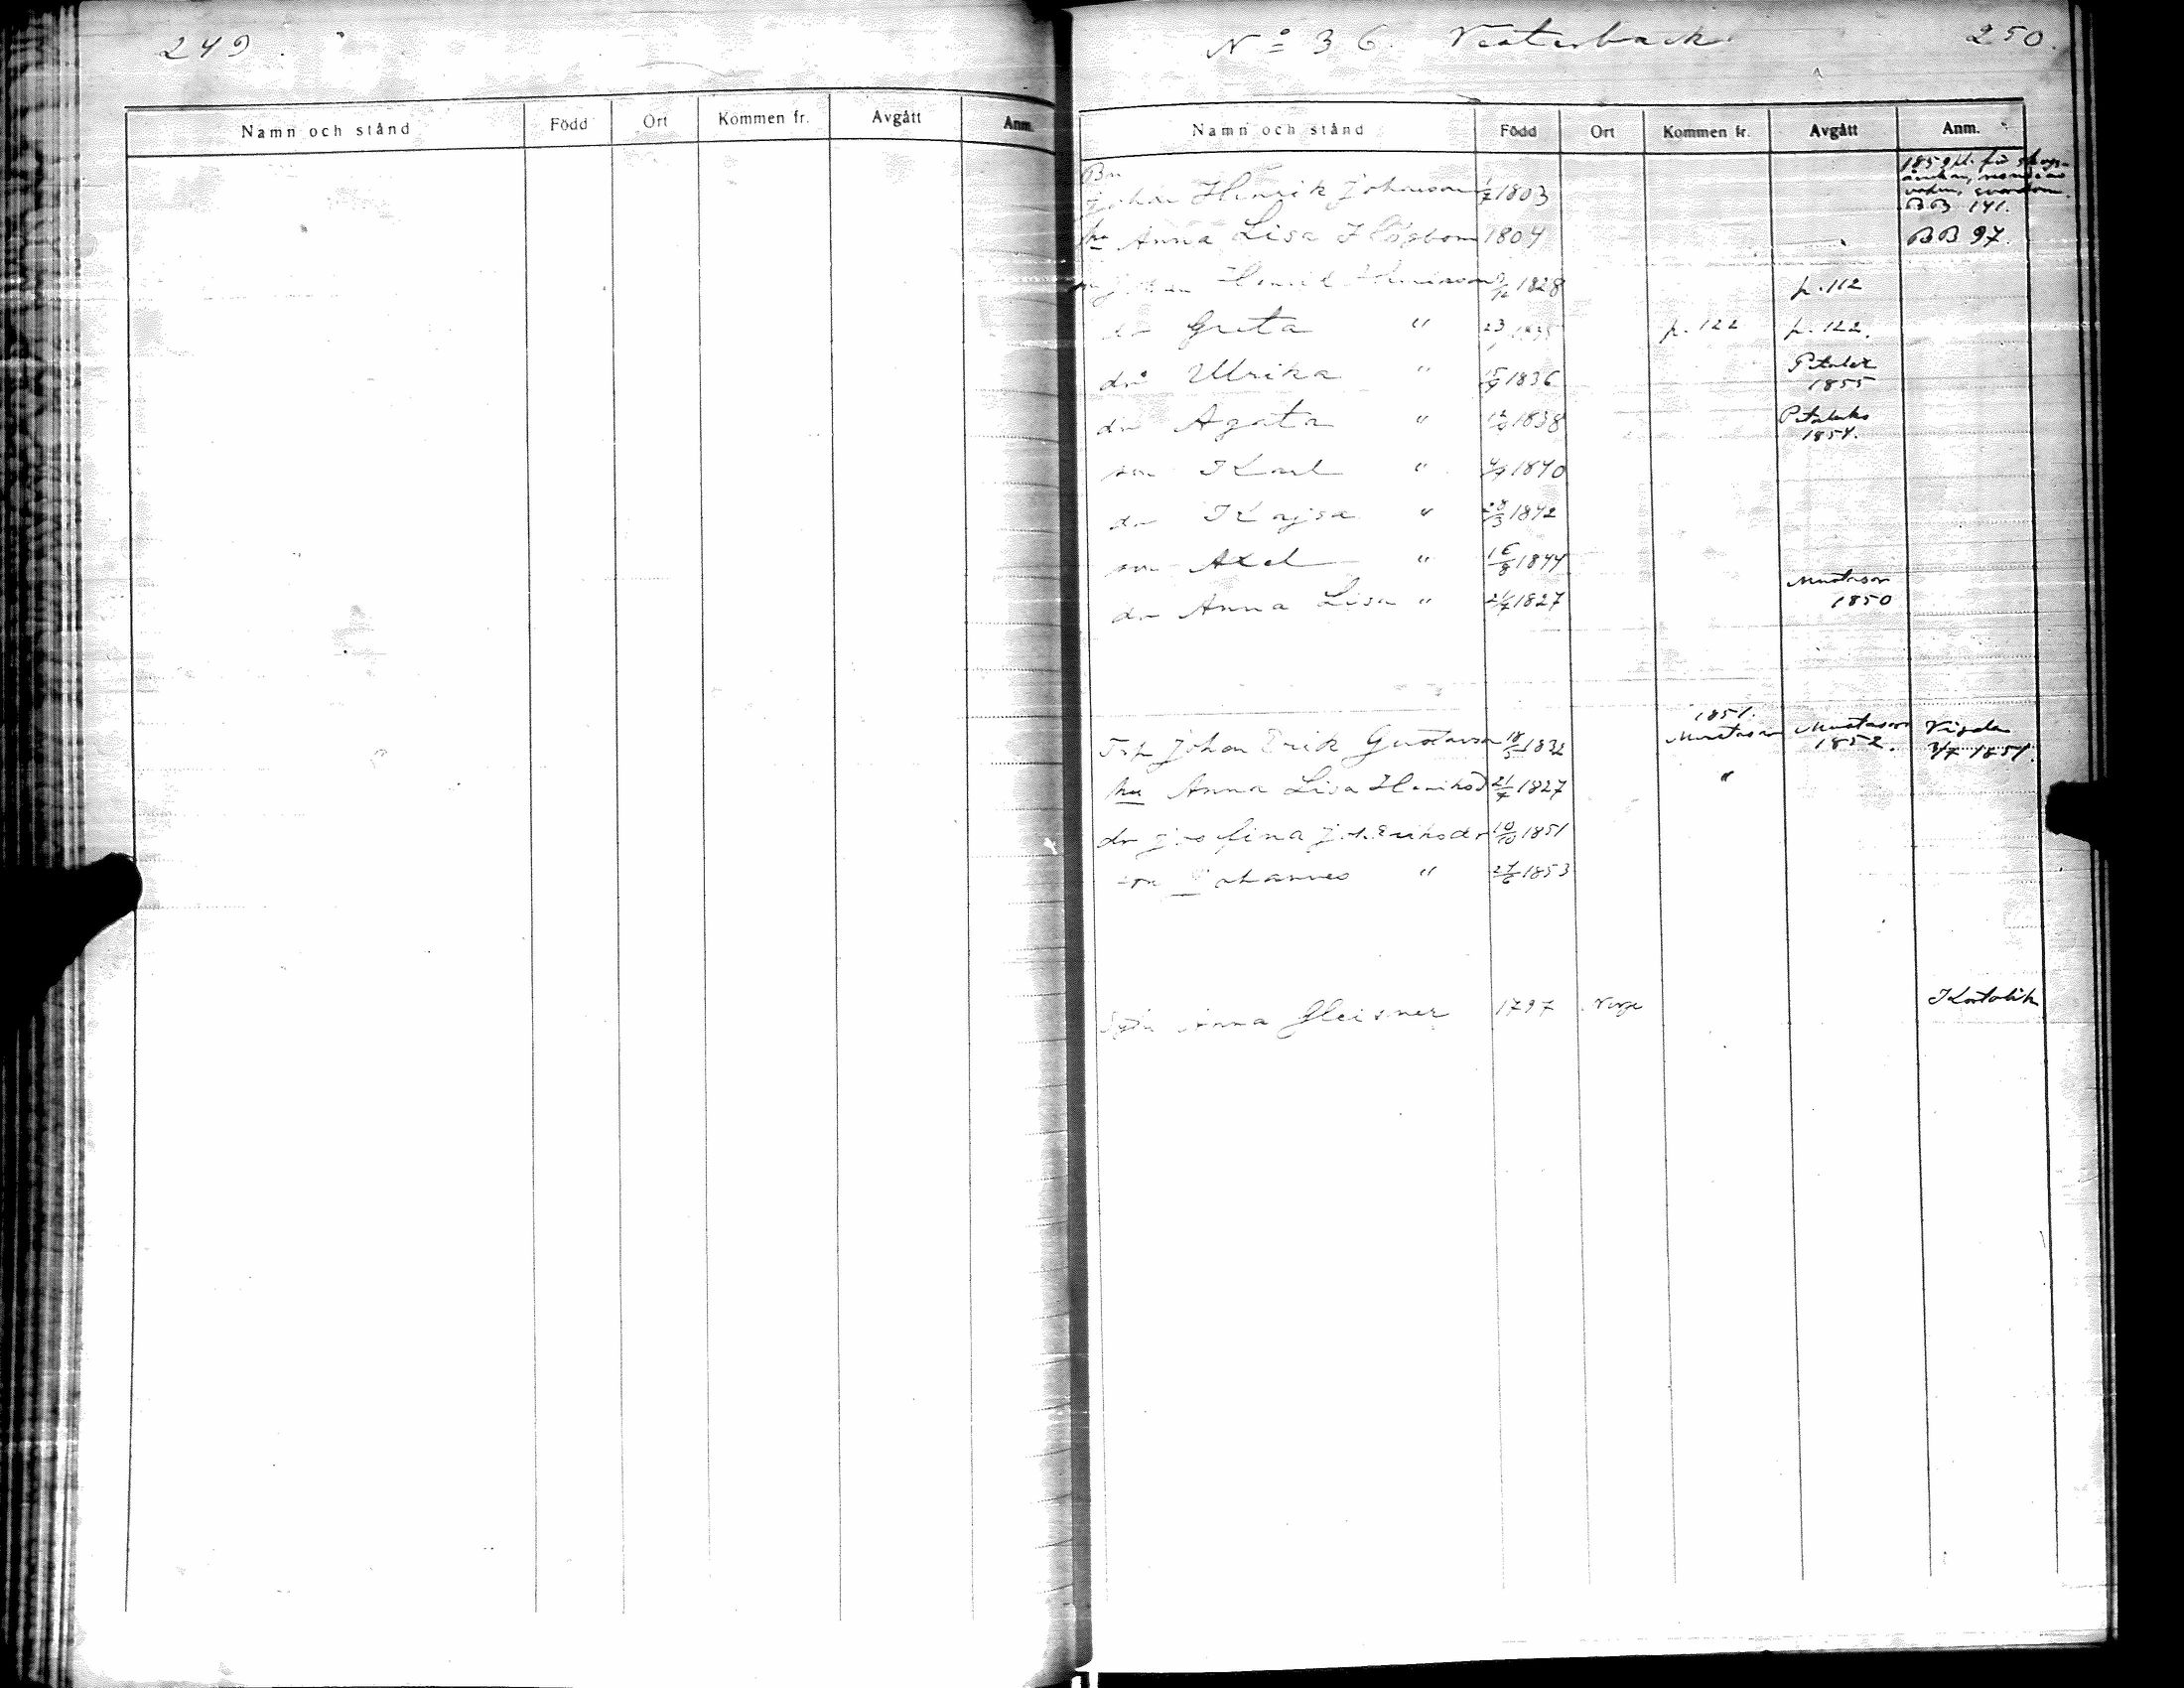 249
Namn och stånd Född Ort Kommen fr. Avgått Anm.
No 36. Vesterback 250.
Namn och stånd Född Ort Kommen fr. Avgått Anm.
Bn
Johan Henrik Johansson 1803
BB 141.
hu Anna Lisa Högbom 1804 BB 97.
Johan Henrik Henriksson 1828 p. 112
dr Greta " 1835 p. 122 p. 122.
dr Ulrika " 1836 1855
dr Agata " 1838 1854.
son Karl " 1840
dr Kajsa " 28/3 1842
son Axel " 16/8 1844
dr Anna Lisa " 21/7 1827 Mustasaar 1850
1851.
Johan Erik Gustavsson 18/5 1832 Mustasaar Mustasaar 1852. Vigda 3/7 1851.
hu Anna Lisa Henriksd 21/7 1827 "
dr Josefina Joh. Eriksdr 10/10 1851
son Johannes " 27/6 1853
Anna Gleisner 1797 Norge Katolik